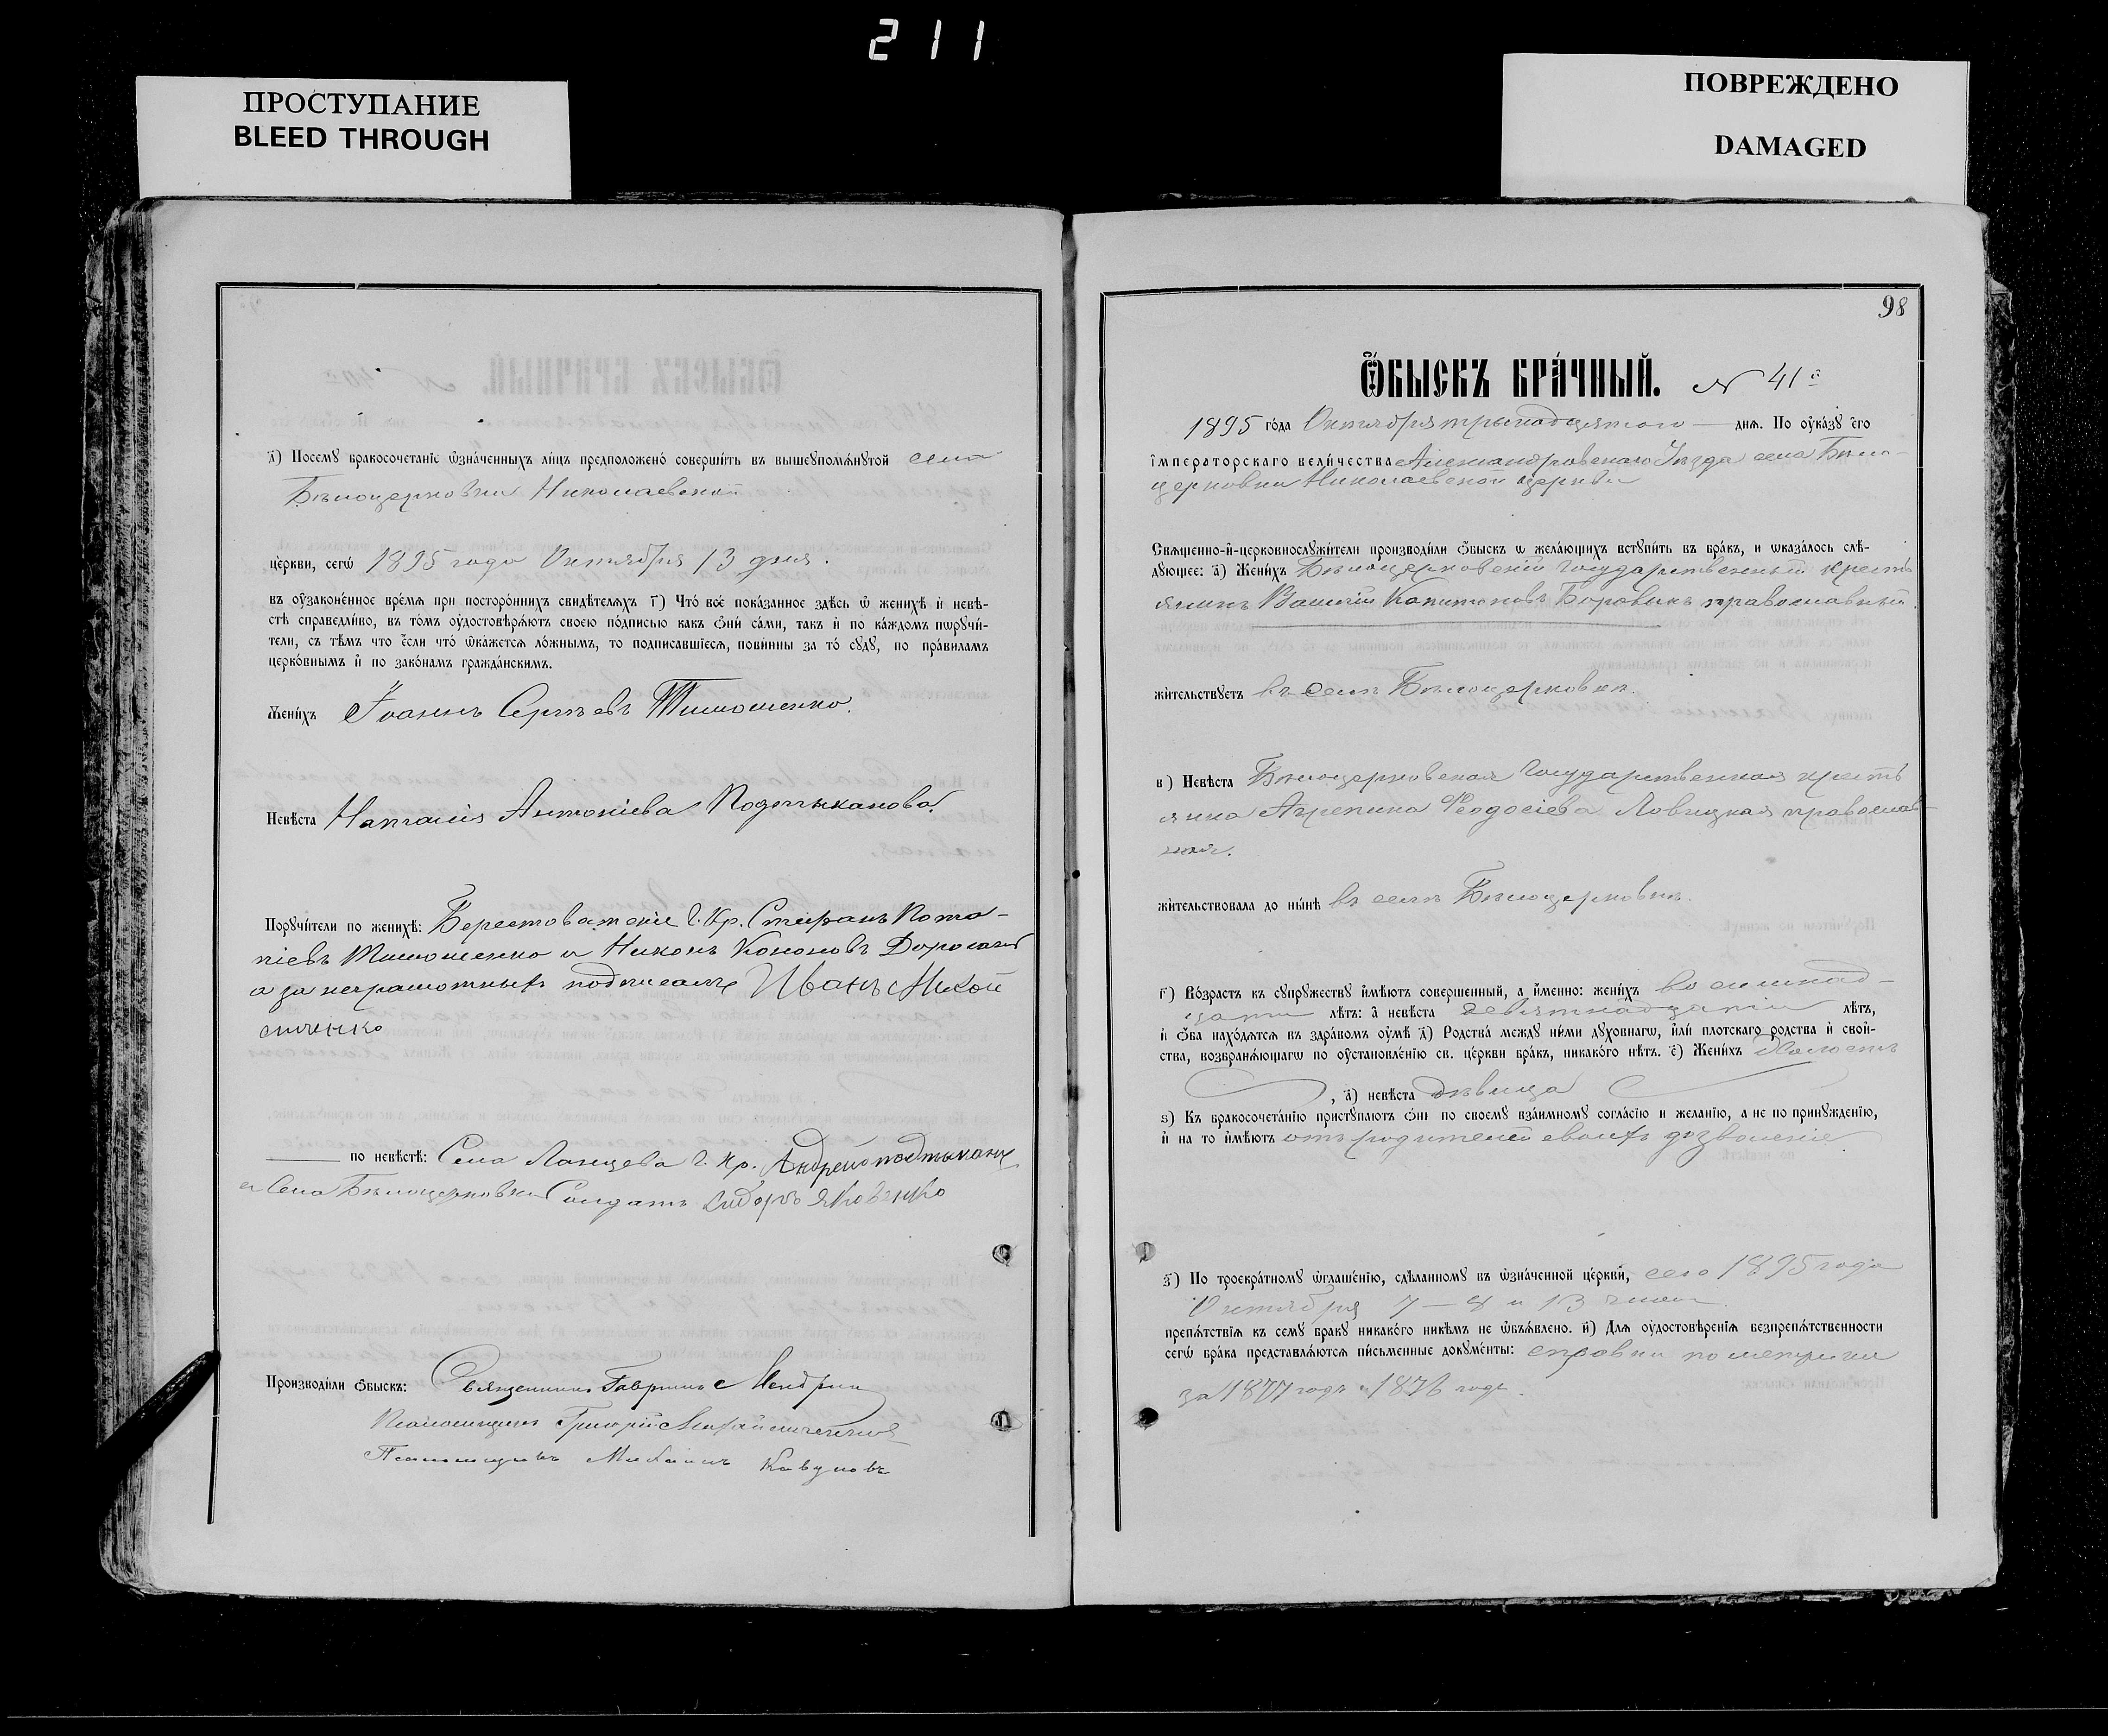 211
ПРОСТУПАНИЕ
BLEED THROUGH
ПОВРЕЖДЕНО
DAMAGED
д҃) Посемꙋ бракосочетаніе ѡзна́ченныхъ ли́цъ предположено́ соверши́ть въ вышеꙋпомѧ́нꙋтой села
Бѣлоцерковки Николаевской
це́ркви, сегѡ̀ 1895 года Октября 13 дня.
въ оу҆зако́нѐнное вре́мѧ при посторо́ннихъ свидѣ́телѧхъ г҃) Что́ всѐ пока́занное здѣ́сь ѡ҆ женихѣ̀ и҆ невѣ́-
стѣ справедли́во, въ то́мъ оу҆достовѣрѧ́ютъ своею по́дписью какъ ѻ҆ни́ са́ми, та́къ и҆ по ка́ждомъ пѡрꙋчи́-
тели, съ тѣ́мъ что е҆́сли что́ ѡ҆ка́жетсѧ ло́жнымъ, то подписавшіесѧ, пови́нны за то́ сꙋ́дꙋ, по пра́виламъ
церко́внымъ и҆ по зако́намъ гражда́нскимъ.
Жени́хъ Іоаннъ Сергѣевъ Тимошенко.
Невѣ́ста Наталія Антоніева Подтыканова
Порꙋчи́тели по женихѣ̀: Берестоватскіе Г. Кр. Стефанъ Пота-
піевъ Тимошенко и Никонъ Кононовъ
а за неграмотныхъ подписалъ Иванъ
по невѣ́стѣ: Села Ланцева Г. Кр. Андрей Подтыканъ
и Села Бѣлоцерковки Солдатъ Сидоръ Яковенко
Производи́ли ѻ҆́быскъ: Священникъ Гавріилъ
Псаломщикъ Григорій
Псаломщикъ Михаилъ Кавуновъ
98
Ѻ҆БЫСКЪ БРА́ЧНЫЙ. N 41й
1895 го́да Октября тринадцатаго днѧ. По оу҆ка́зꙋ є҆го̀
и҆мператорскаго вели́чества Александровскаго Уѣзда села Бѣло-
церковки Николаевской церкви
Свѧщенно-и҆-церковнослꙋжи́тели производи́ли ѻ҆́быскъ ѡ жела́ющихъ встꙋпи́ть въ бра́къ, и ѡказа́лось слѣ́-
дꙋющее: а҃) Жени́хъ Бѣлоцерковскій Государственный кресть
янинъ Василій Капитоновъ Боровикъ православный.
жи́тельствꙋетъ въ селѣ Бѣлоцерковкѣ.
в҃) Невѣ́ста Бѣлоцерковская Государственная кресть
янка Агрепина Феодосіева Ловицкая православ-
ная.
жи́тельствовала до ны́нѣ въ селѣ Бѣлоцерковкѣ.
г҃) Во́зрастъ къ сꙋпрꙋ́жествꙋ и҆мѣ́ютъ соверше́нный, а и҆́менно: жени́хъ восемнад-
цати лѣ́тъ: а҆ невѣ́ста девятнадцати лѣ́тъ,
и҆ ѻ҆́ба нахо́дѧтсѧ въ здра́вомъ оу҆мѣ̀ д҃) Родства̀ междꙋ ни́ми дꙋхо́внагѡ, и҆лѝ пло́тскагѡ родства̀ и҆ свой-
ства̀, возбранѧ́ющагѡ по оу҆становле́нію св. це́ркви бра́къ, никако́го нѣ́тъ. е҃) Жени́хъ холостъ
, а҆) невѣ́ста дѣвица
ѕ҃) Къ бракосочета́нію пристꙋпа́ютъ ѻ҆ни́ по своемꙋ̀ взаи́мномꙋ согла́сію и жела́нію, а не по принꙋжде́нію,
и҆ на то́ и҆мѣ́ютъ отъ родителей своихъ дозволеніе
з҃) По троекра́тномꙋ ѡ҆глаше́нію, сдѣ́ланномꙋ въ ѡ҆зна́ченной це́ркви, сего 1895 года
Октября 7 – 8 и 13 чиселъ
препѧ́тствіѧ къ семꙋ̀ бра́кꙋ никако́го никѣ́мъ не ѡ҆б̾ѧ́влено. и҃) Длѧ̀ оу҆достовѣре́ніѧ безпрепѧ́тственности
сегѡ̀ бра́ка представлѧ́ются пи́сьменные докꙋме́нты: справки по метрикѣ
за 1877 годъ и 1876 годъ.